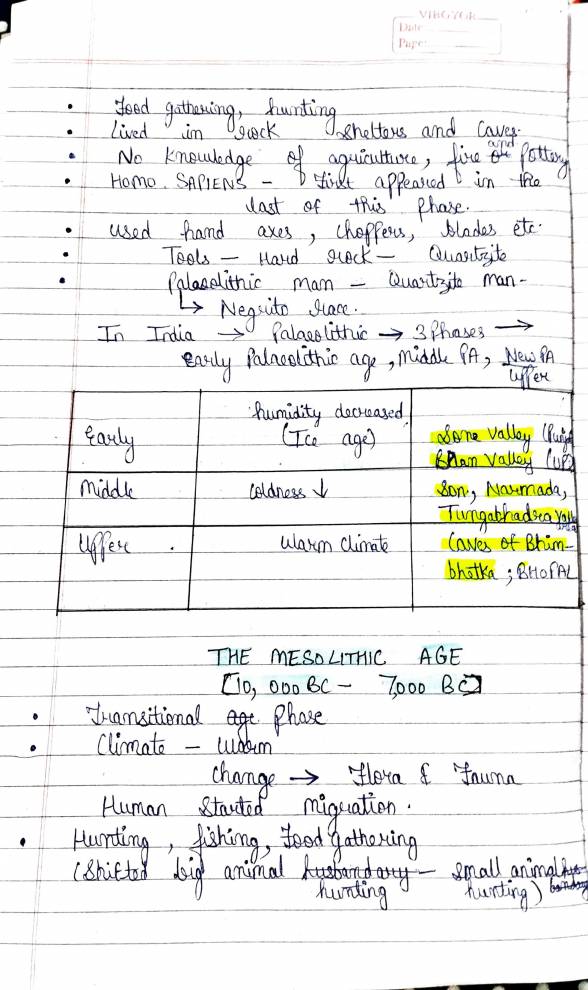 VIBGYOR
Date
Page
• Food gathering, hunting
• Lived in rock shelters and caves.
• No knowledge of agriculture, fire and pottery
• Homo. SAPIENS - First appeared in the
last of this phase.
• used hand axes, choppers, blades etc.
• Tools - Hard rock - Quartzite
• Palaeolithic man - Quartzite man -
↳ Negrito race.
In India → Palaeolithic → 3 Phases →
Early Palaeolithic age, Middle PA, New PA
Upper
Early humidity decreased (Ice age) Sone Valley
Valley (UP)
Middle coldness ↓ Son, Narmada,
Tungabhadra
Upper . Warm Climate Caves of Bhim-
bhetka ; BHOPAL
THE MESOLITHIC AGE
[10,000 BC - 7,000 BC]
• Transitional age Phase
• Climate - warm
change → Flora & Fauna
Human Started migration.
• Hunting, fishing, Food gathering
(Shifted big animal husbandary - small animal
hunting hunting)